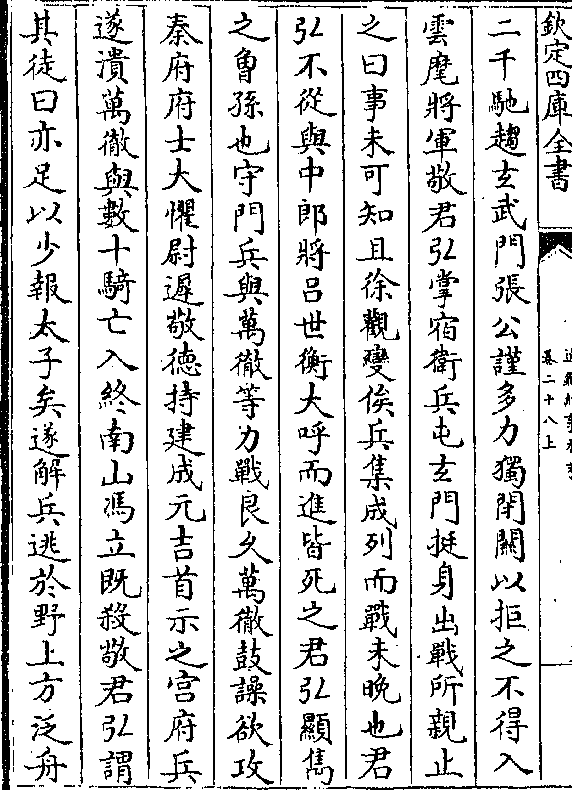 欽定四庫全書
卷二十八上
二千馳趨玄武門張公謹多力獨閉關以拒之不得入
雲麾將軍敬君弘掌宿衛兵屯玄門挺身出戰所親止
之曰事未可知且徐觀變俟兵集成列而戰未晚也君
弘不從與中郎將呂世衡大呼而進皆死之君弘顯雋
之曾孫也守門兵與萬徹等力戰良久萬徹鼓譟欲攻
秦府府士大懼尉遲敬德持建成元吉首示之宮府兵
遂潰萬徹與數十騎亡入終南山馮立既殺敬君弘謂
其徒曰亦足以少報太子矣遂解兵逃於野上方泛舟